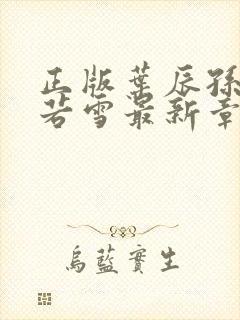 正版叶辰孫
若雪最新章
烏藍實生